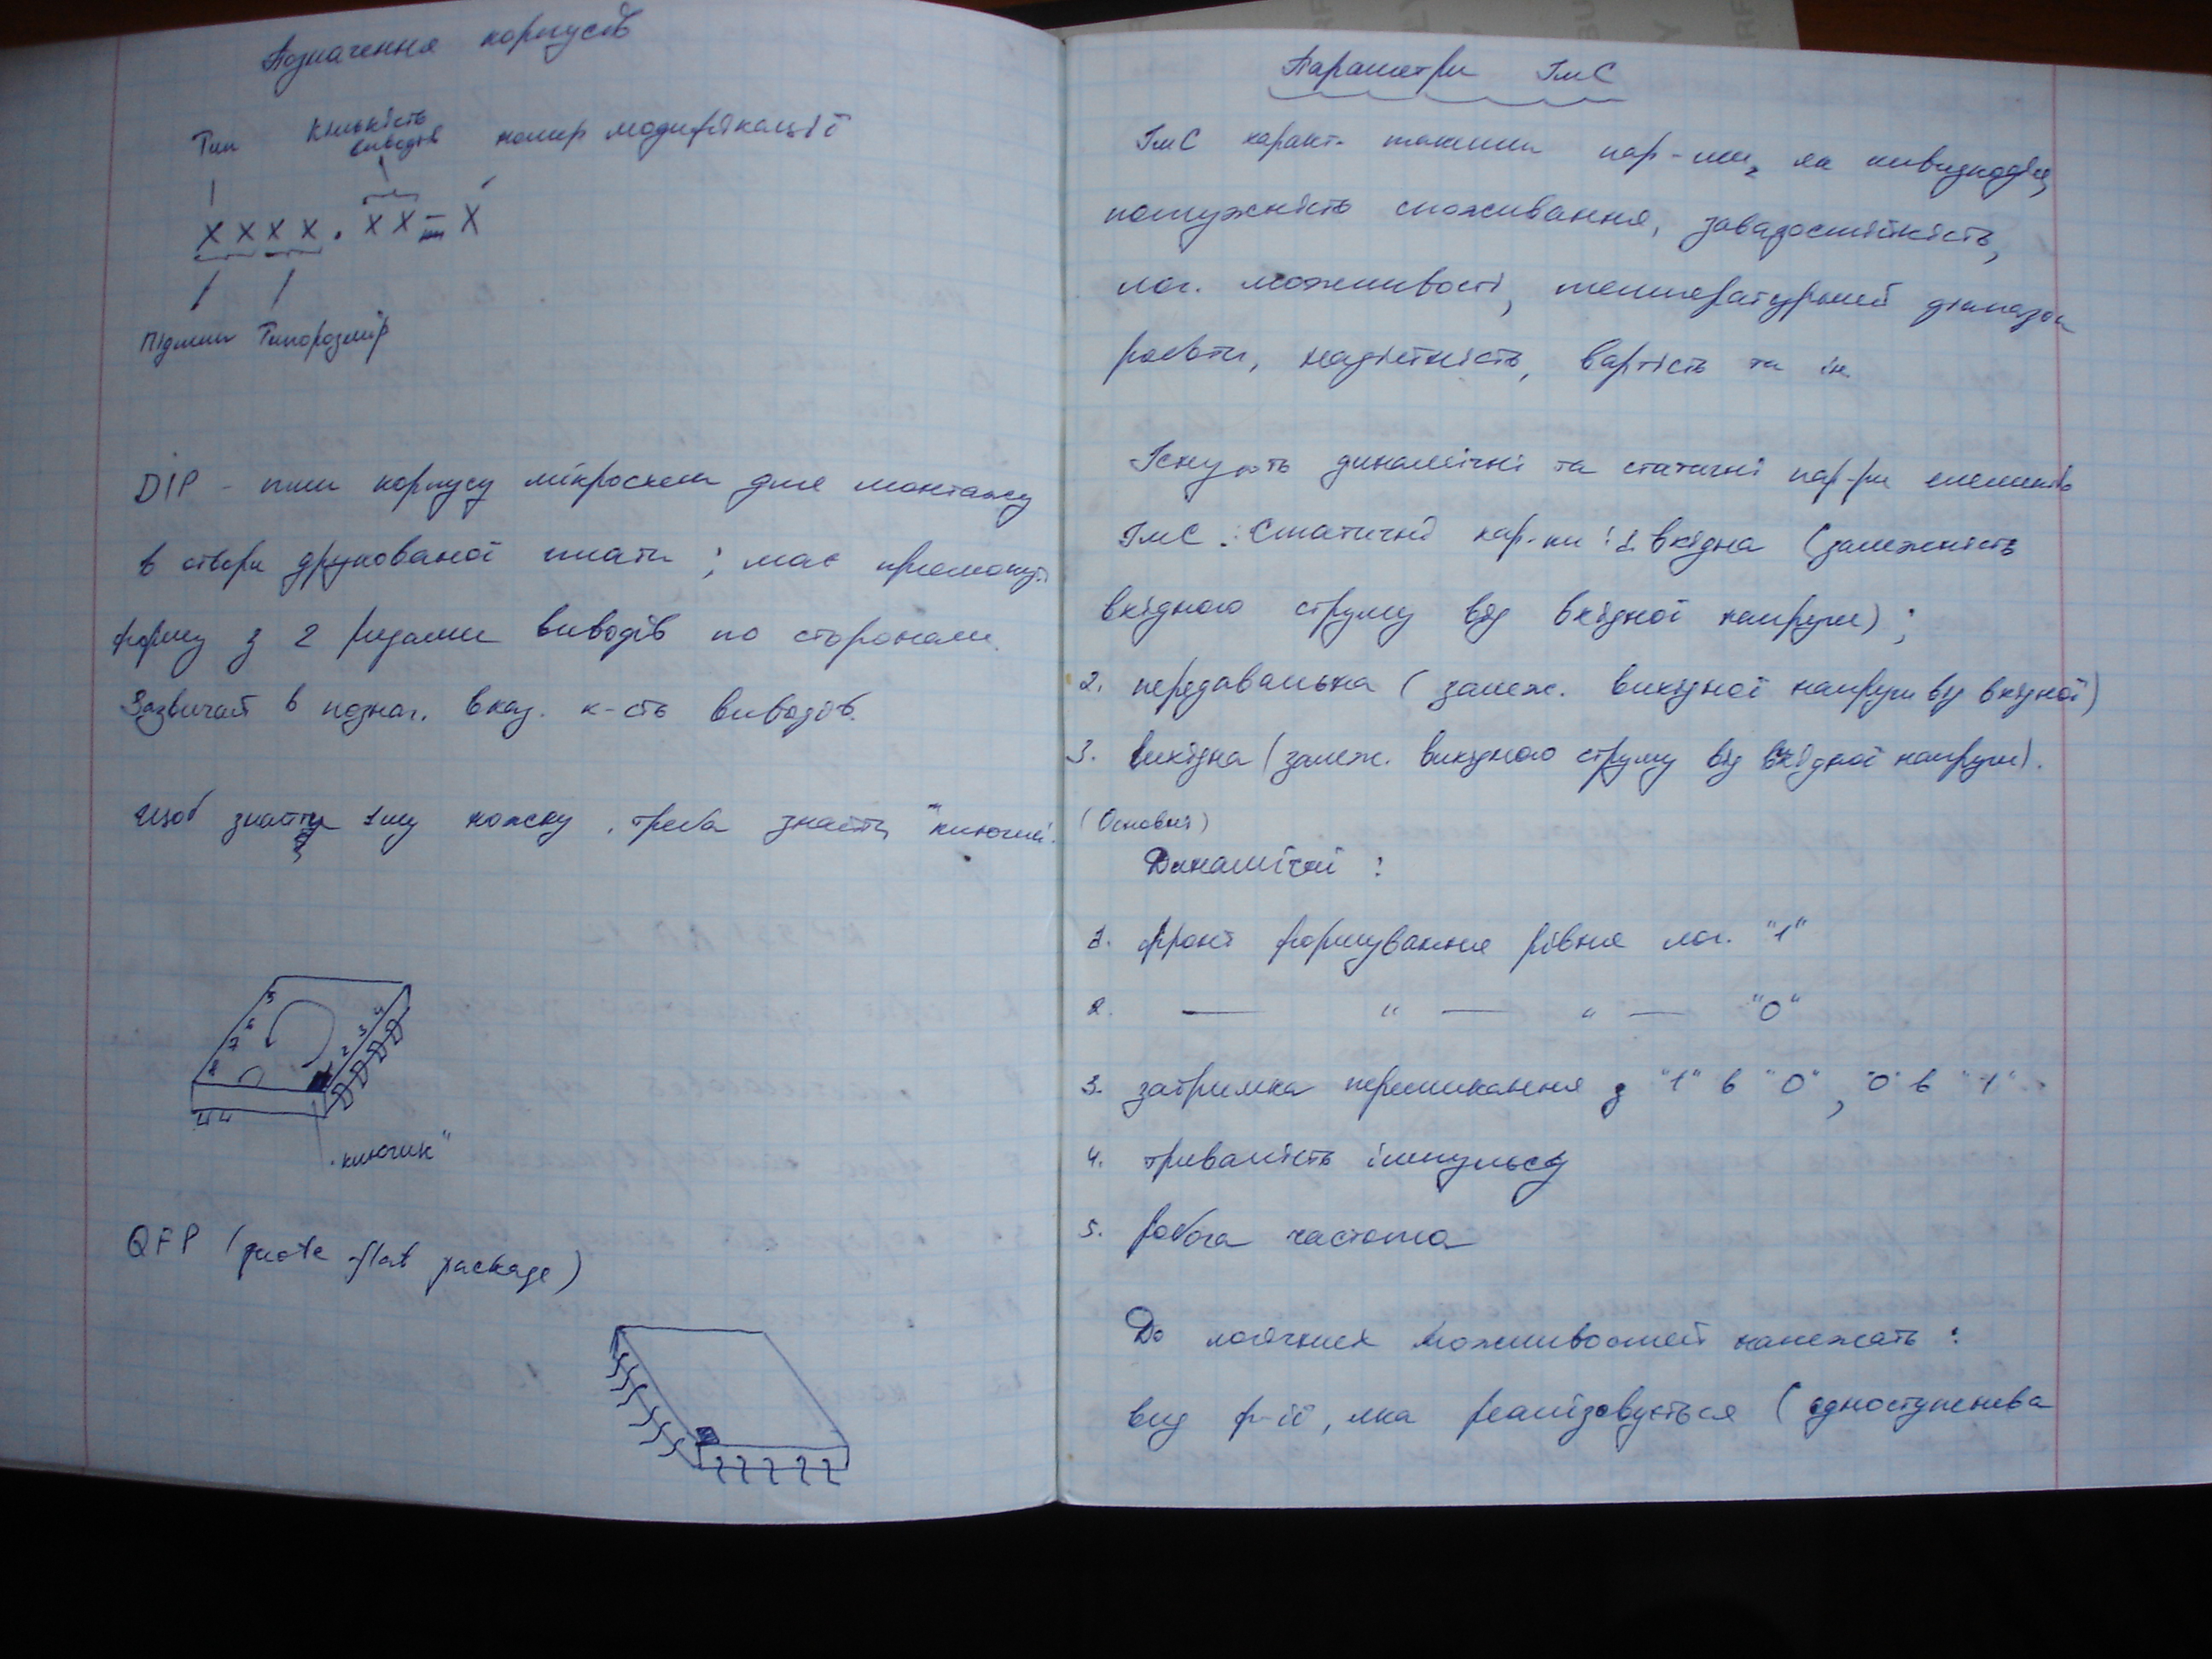 Позначення корпусів
Тип кількість виводів номер модифікації
X X X X . X X - X
Підтип Типорозмір
DIP - тип корпусу мікросхем для монтажу
в отвори друкованої плати ; має прямокут.
форму з 2 рядами виводів по сторонам.
Зазвичай в познач. вказ. к-сть виводів.
Щоб знайти 1шу ножку, треба знайти "ключик".
5 4
6 3
7 2
8
"ключик"
QFP (quote flat package)
Параметри ІмС
ІмС характ. такими пар-ми, як швидкодія,
потужність споживання, завадостійкість,
лог. можливості, температурний діапазон
роботи, надійність, вартість та ін.
Існують динамічні та статичні пар-ри елементів
ІмС. Статичні хар-ки : 1. вхідна (залежність
вхідного струму від вхідної напруги) ;
2. передавальна ( залеж. вихідної напруги від вхідної)
3. вихідна (залеж. вихідного струму від вхідної напруги).
(Основні)
Динамічні :
1. фронт формування рівня лог. "1"
2. — " — " — "0"
3. затримка перемикання з "1" в "0", "0" в "1".
4. тривалість імпульсу
5. Робоча частота
До логічних можливостей належать :
вид ф-ії, яка реалізовується ( одноступенева